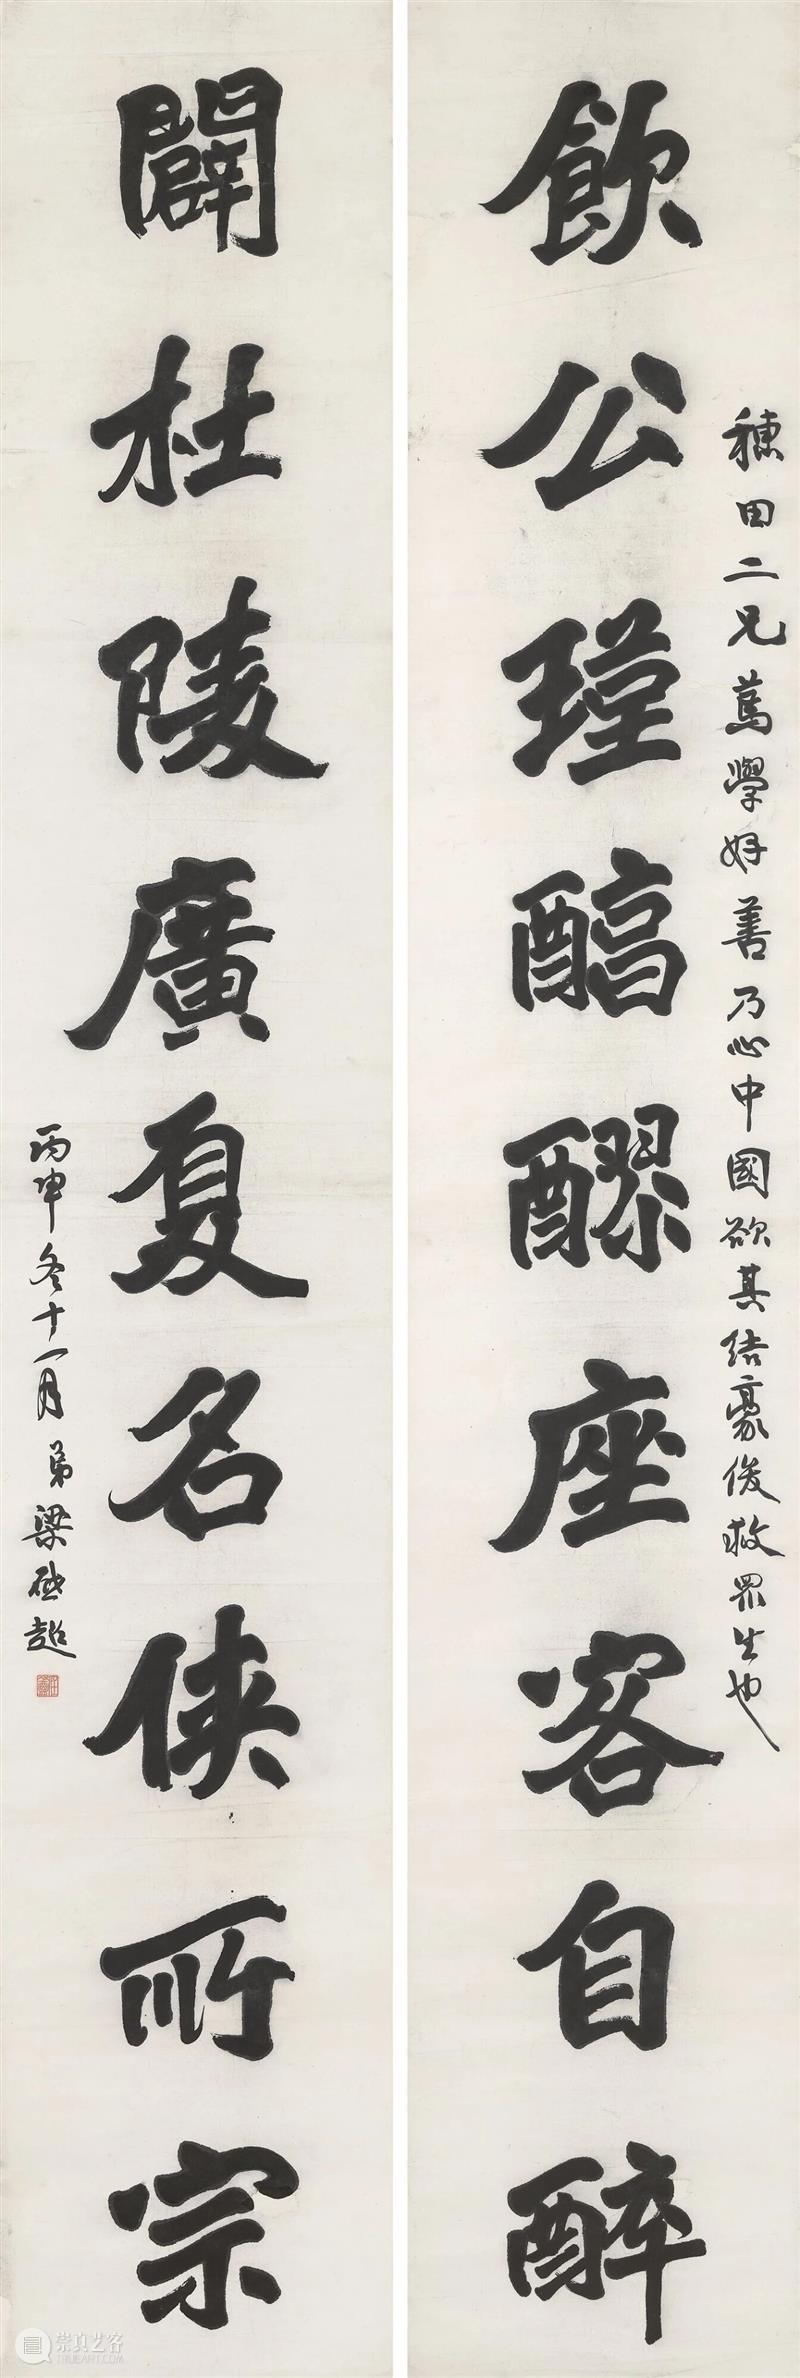 穗田二兄篤學好善乃心中國欲其結豪俊救眾生也
飲公瑾醇醪座客自醉
闢杜陵廣夏名俠所宗
丙申冬十一月弟梁啟超
崇真艺客
TRUEART.COM